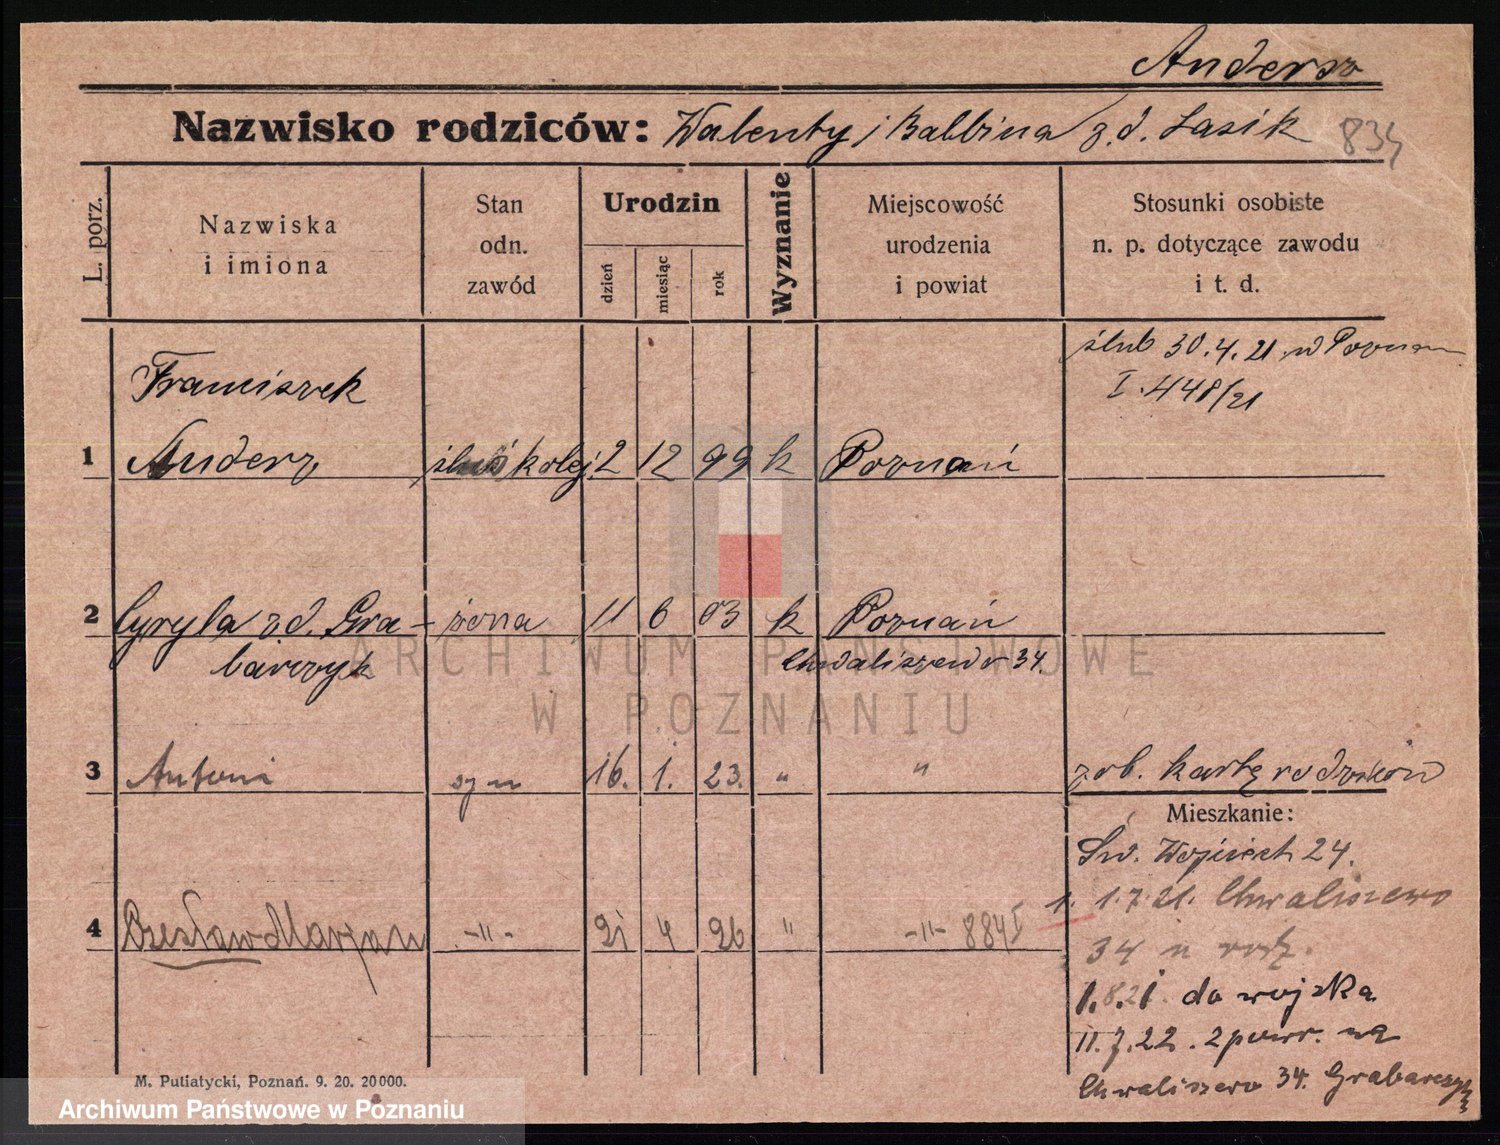 Andersz
Nazwisko rodziców: Walenty i Balbina z.d. Łasik 834
L. porz.
Nazwiska
i imiona
Stan
odn.
zawód
Urodzin
dzień
miesiąc
rok
Wyznanie
Miejscowość
urodzenia
i powiat
Stosunki osobiste
n. p. dotyczące zawodu
i t. d.
ślub 30.4.21 w Poznan
I. 448/21
Franciszek
1 Anderz kolej. 2 12 99 k Poznań
2 Cyryla z d. Gra- żona 11 6 03 k Poznań
barczyk Chwaliszewo 34
3 Antoni syn 16. 1. 23. " " zob. kartę rodziców
Mieszkanie:
Św. Wojciech 24.
1. 1.7.21. Chwaliszewo
4 Czesław Marjan -"- 21 4 26 " -"- 884I
34 u rodz.
1.8.21 do wojska
11.7.22. z powr. na
Chwaliszewo 34. Grabarczyk
M. Putiatycki, Poznań. 9. 20. 20000.
ARCHIWUM PAŃSTWOWE
W POZNANIU
Archiwum Państwowe w Poznaniu